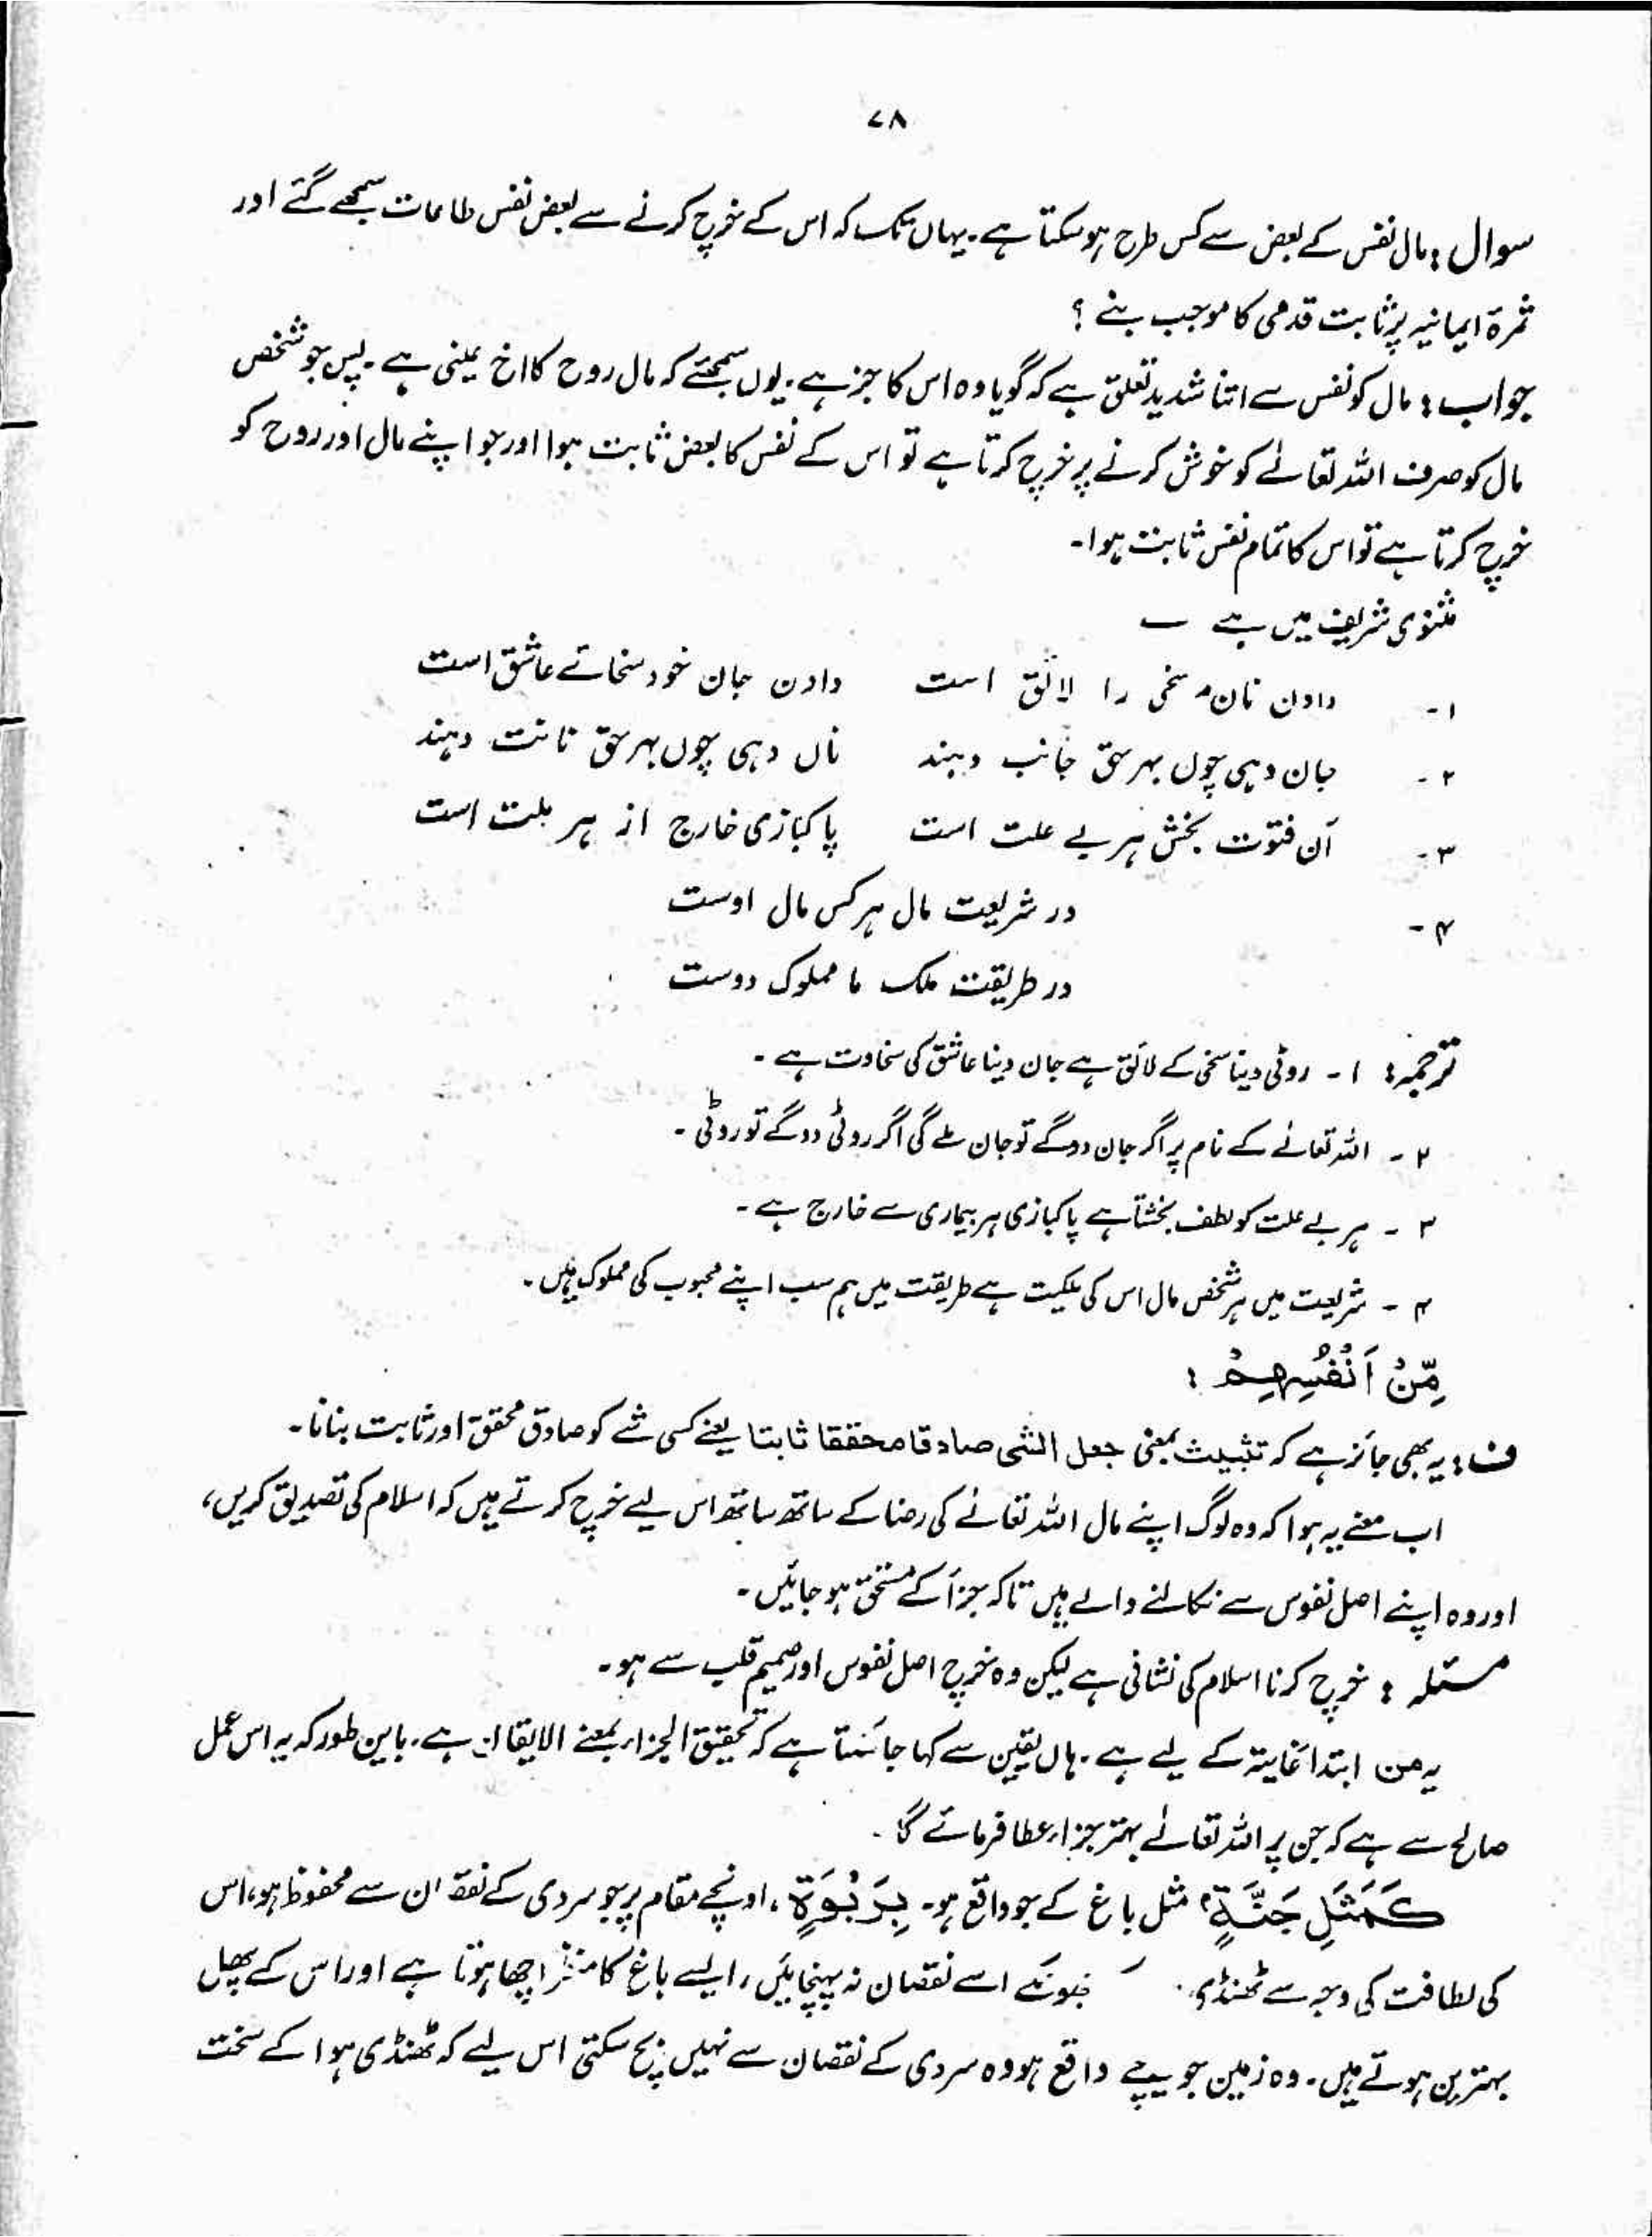 ۷۸
سوال : مال نفس کے بعض سے کس طرح ہو سکتا ہے۔ یہاں تک کہ اس کے خرچ کرنے سے بعض نفس طاعات سمجھے گئے اور
ثمرۃ ایمانیہ پر ثابت قدمی کا موجب بنے ؟
جواب : مال کو نفس سے اتنا شدید تعلق ہے کہ گویا وہ اس کا جز ہے۔ یوں سمجھئے کہ مال روح کا اخ یمینی ہے۔ پس جو شخص
مال کو صرف اللہ تعالےٰ کو خوش کرنے پر خرچ کرتا ہے تو اس کے نفس کا بعض ثابت ہوا اور جو اپنے مال اور روح کو
خرچ کرتا ہے تو اس کا تمام نفس ثابت ہوا۔
مثنوی شریف میں ہے ؎
۱- دادن نان مر سخی را لائق است دادن جان خود سخائے عاشق است
۲- جان دہی چوں بہر حق جانب دہند ناں دہی چوں بہر حق نانت دہند
۳- آن فتوت بخش ہر بے علت است پاکبازی خارج از ہر ملت است
۴- در شریعت مال ہر کس مال اوست
در طریقت ملک ما مملوک دوست
ترجمہ : ۱ - روٹی دینا سخی کے لائق ہے جان دینا عاشق کی سخاوت ہے ۔
۲ - اللہ تعالےٰ کے نام پر اگر جان دوگے تو جان ملے گی اگر روٹی دوگے تو روٹی ۔
۳ - ہر بے علت کو لطف بخشتا ہے پاکبازی ہر بیماری سے خارج ہے ۔
۴ - شریعت میں ہر شخص مال اس کی ملکیت ہے طریقت میں ہم سب اپنے محبوب کی مملوک ہیں ۔
مِّنْ اَنْفُسِهِمْ :
ف : یہ بھی جائز ہے کہ تثبیت بمعنی جعل الشی صادقا محققا ثابتا یعنے کسی شے کو صادق محقق اور ثابت بنانا۔
اب معنے یہ ہوا کہ وہ لوگ اپنے مال اللہ تعالےٰ کی رضا کے ساتھ ساتھ اس لیے خرچ کرتے ہیں کہ اسلام کی تصدیق کریں،
اور وہ اپنے اصل نفوس سے نکالنے والے ہیں تاکہ جزأ کے مستحق ہو جائیں ۔
مسئلہ : خرچ کرنا اسلام کی نشانی ہے لیکن وہ خرچ اصل نفوس اور صمیم قلب سے ہو۔
یہ من ابتدأ غایتہ کے لیے ہے۔ ہاں یقین سے کہا جا سکتا ہے کہ تحقیق الجزاء بمعنے الایقان ہے۔ بایں طور کہ یہ اس عمل
صالح سے ہے کہ جن پر اللہ تعالےٰ بہتر جزاء عطا فرمائے گا ۔
كَمَثَلِ جَنَّةٍ مثل باغ کے جو واقع ہو۔ بِرَبْوَةٍ ، اونچے مقام پر جو سردی کے نقصان سے محفوظ ہو، اس
کی لطافت کی وجہ سے ٹھنڈی جھونکے اسے نقصان نہ پہنچائیں ، ایسے باغ کا منظر اچھا ہوتا ہے اور اس کے پھل
بہترین ہوتے ہیں۔ وہ زمین جو نیچے واقع ہو وہ سردی کے نقصان سے نہیں بچ سکتی اس لیے کہ ٹھنڈی ہوا کے سخت